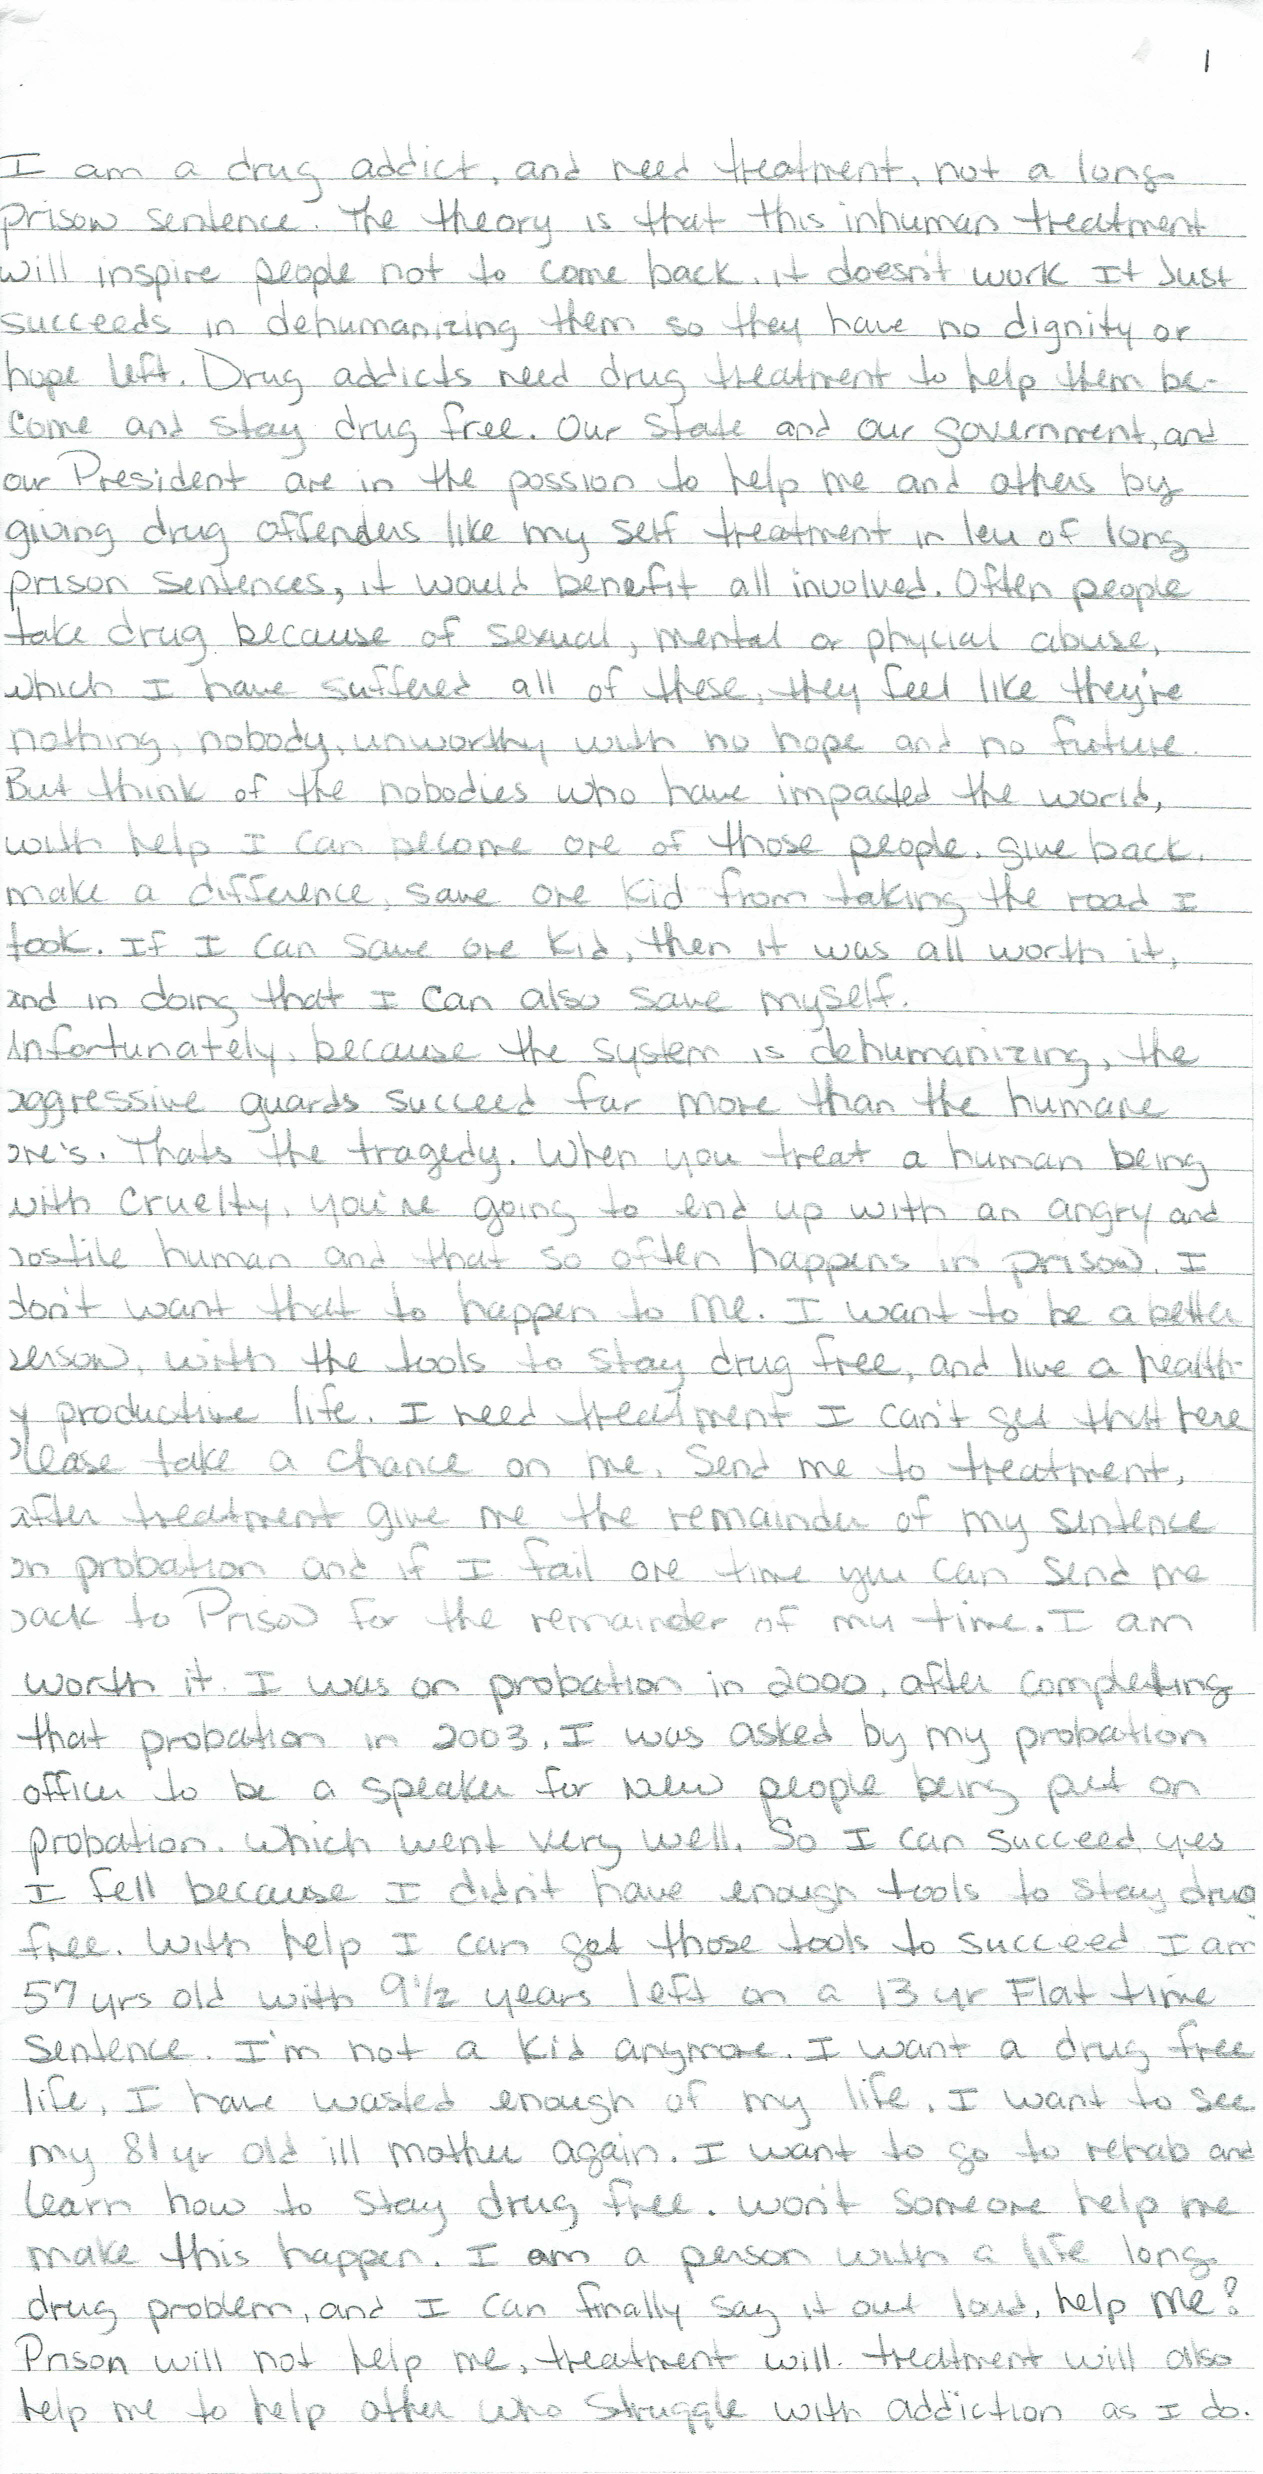 1
I am a drug addict, and need treatment, not a long
prison sentence. The theory is that this inhuman treatment
will inspire people not to come back. it doesn't work It Just
succeeds in dehumanizing them so they have no dignity or
hope left. Drug addicts need drug treatment to help them be-
come and stay drug free. Our State and our government, and
our President are in the possion to help me and others by
giving drug offenders like my self treatment in leu of long
prison sentences, it would benefit all involved. Often people
take drug because of sexual, mental or phycial abuse,
which I have suffered all of these, they feel like they're
nothing, nobody, unworthy with no hope and no future.
But think of the nobodies who have impacted the world,
with help I can become one of those people. give back.
make a difference, save one kid from taking the road I
took. If I can save one kid, then it was all worth it,
and in doing that I can also save myself.
Unfortunately, because the system is dehumanizing, the
aggressive guards succeed far more than the humane
one's. Thats the tragedy. When you treat a human being
with cruelty, you're going to end up with an angry and
hostile human and that so often happens in prison. I
don't want that to happen to me. I want to be a better
person, with the tools to stay drug free, and live a health-
y productive life. I need treatment I can't get that here
Please take a chance on me. Send me to treatment,
after treatment give me the remainder of my sentence
on probation and if I fail one time you can send me
back to Prison for the remainder of my time. I am
worth it. I was on probation in 2000, after completing
that probation in 2003, I was asked by my probation
officer to be a speaker for New people being put on
probation. which went very well. So I can succeed, yes
I fell because I didn't have enough tools to stay drug
free. With help I can get those tools to succeed I am
57 yrs old with 9 1/2 years left on a 13 yr Flat time
sentence. I'm not a kid anymore. I want a drug free
life, I have wasted enough of my life. I want to see
my 81 yr old ill mother again. I want to go to rehab and
learn how to stay drug free. won't someone help me
make this happen. I am a person with a life long
drug problem, and I can finally say it out loud, help me?
Prison will not help me, treatment will. treatment will also
help me to help other who struggle with addiction as I do.